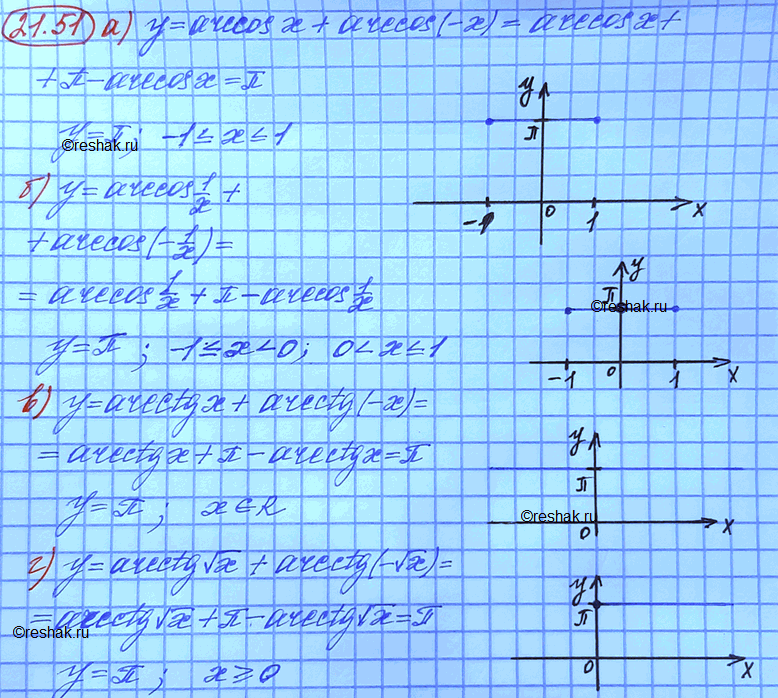 21.51 а) y = arccos x + arccos(-x) = arccos x +
+ π - arccos x = π
y = π; -1 ≤ x ≤ 1
©reshak.ru
y
π
-1 0 1 x
б) y = arccos 1/x +
+ arccos(-1/x) =
= arccos 1/x + π - arccos 1/x
y = π; -1 ≤ x < 0; 0 < x ≤ 1
y
π
©reshak.ru
-1 0 1 x
в) y = arcctg x + arcctg(-x) =
= arcctg x + π - arcctg x = π
y = π; x ∈ R
y
π
©reshak.ru
0 x
г) y = arcctg √x + arcctg(-√x) =
= arcctg √x + π - arcctg √x = π
©reshak.ru
y = π; x ≥ 0
y
π
0 x